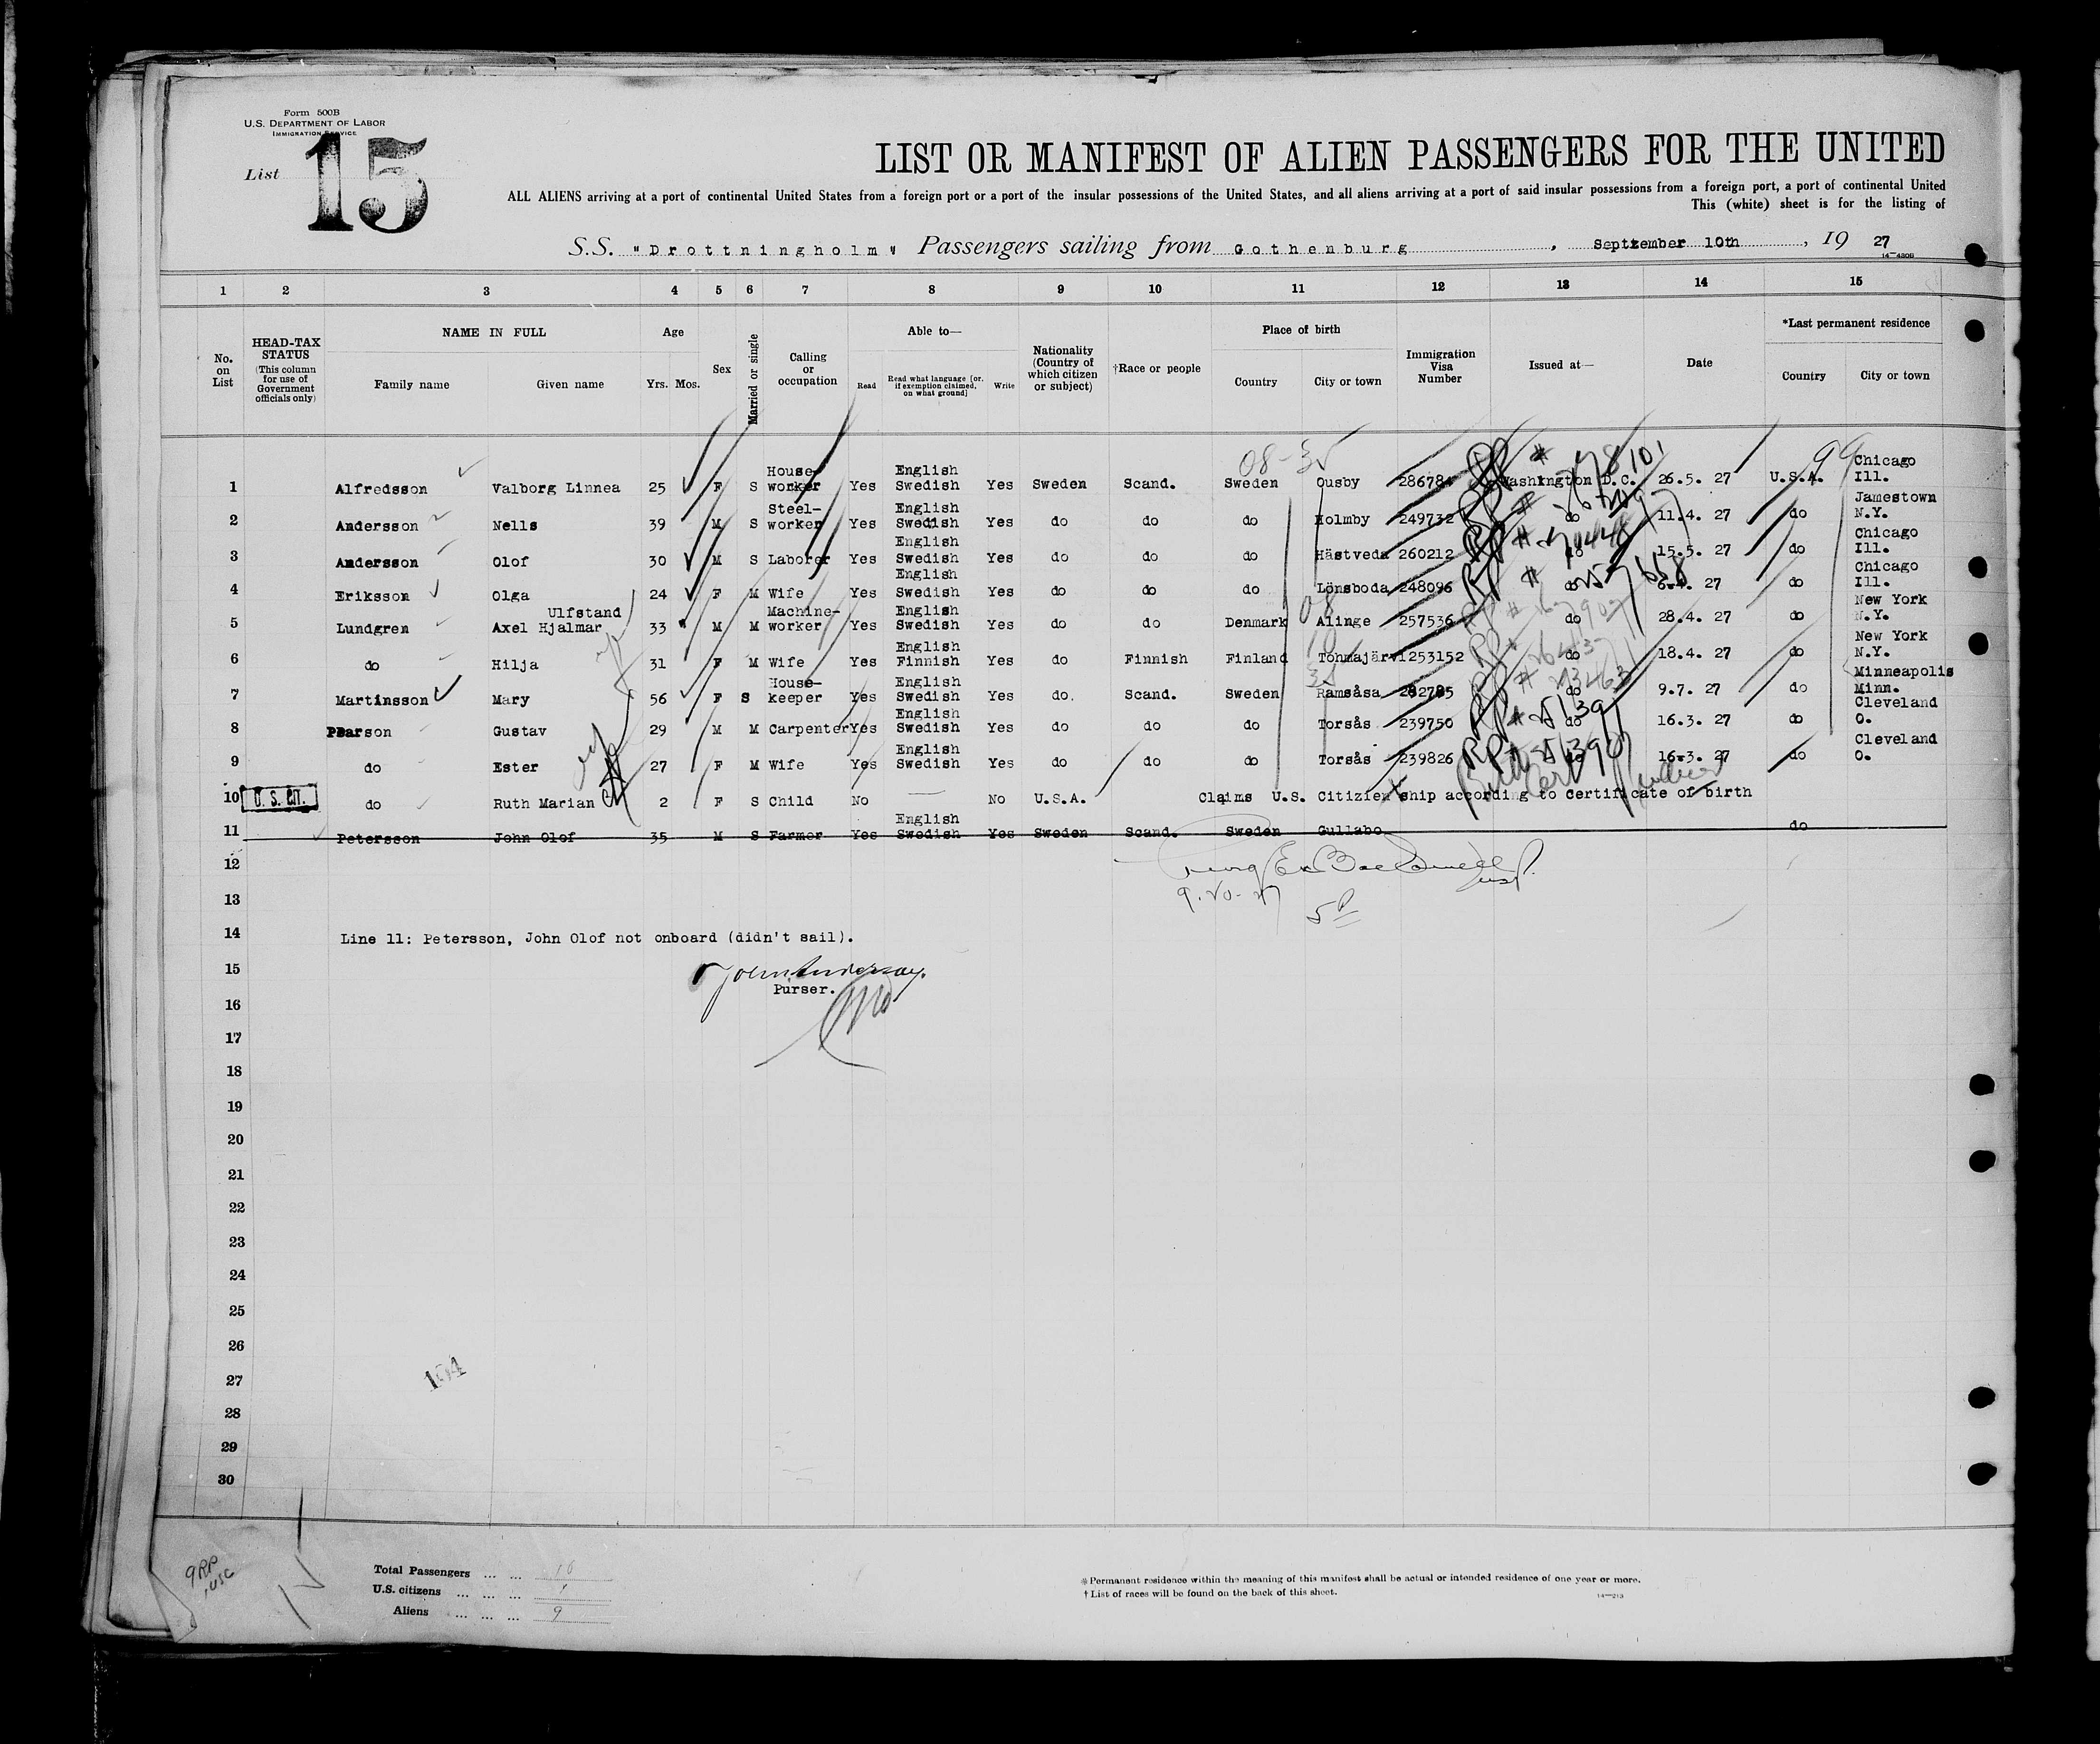 Form 500B
U.S. DEPARTMENT OF LABOR
IMMIGRATION SERVICE
List 15
LIST OR MANIFEST OF ALIEN PASSENGERS FOR THE UNITED
ALL ALIENS arriving at a port of continental United States from a foreign port or a port of the insular possessions of the United States, and all aliens arriving at a port of said insular possessions from a foreign port, a port of continental United
This (white) sheet is for the listing of
S.S. "Drottningholm" Passengers sailing from Gothenburg, September 10th, 1927
14—430B
1 2 3 4 5 6 7 8 9 10 11 12 13 14 15
No. on List
HEAD-TAX STATUS (This column for use of Government officials only)
NAME IN FULL
Family name Given name
Age
Yrs. Mos.
Sex
Married or single
Calling or occupation
Able to—
Read Read what language [or, if exemption claimed, on what ground] Write
Nationality (Country of which citizen or subject)
†Race or people
Place of birth
Country City or town
Immigration Visa Number
Issued at—
Date
*Last permanent residence
Country City or town
08-35 99
1 Alfredsson Valborg Linnea 25 F S House-worker Yes English Swedish Yes Sweden Scand. Sweden Ousby 286784 Washington D.C. 26.5. 27 U.S.A. Chicago Ill.
2 Andersson Nells 39 M S Steel-worker Yes English Swedish Yes do do do Holmby 249732 do 11.4. 27 do Jamestown N.Y.
3 Andersson Olof 30 M S Laborer Yes English Swedish Yes do do do Hästveda 260212 do 15.5. 27 do Chicago Ill.
4 Eriksson Olga 24 F M Wife Yes English Swedish Yes do do do Lönsboda 248096 do 6.4. 27 do Chicago Ill.
5 Lundgren Axel Hjalmar Ulfstand 33 M M Machine-worker Yes English Swedish Yes do do Denmark Alinge 257536 do 28.4. 27 do New York N.Y.
6 do Hilja 31 F M Wife Yes English Finnish Yes do Finnish Finland Tohmajärvi 253152 do 18.4. 27 do New York N.Y.
7 Martinsson Mary 56 F S House-keeper Yes English Swedish Yes do. Scand. Sweden Ramsåsa 282785 do 9.7. 27 do Minneapolis Minn.
8 Pearson Gustav 29 M M Carpenter Yes English Swedish Yes do do do Torsås 239750 do 16.3. 27 do Cleveland O.
9 do Ester 27 F M Wife Yes English Swedish Yes do do do Torsås 239826 do 16.3. 27 do Cleveland O.
10 U. S. CIT. do Ruth Marian 2 F S Child No — No U.S.A. Claims U.S. Citizienship according to certificate of birth
11 Petersson John Olof 35 M S Farmer Yes English Swedish Yes Sweden Scand. Sweden Gullabo do
12
9.20-27
13
14 Line 11: Petersson, John Olof not onboard (didn't sail).
15
Purser.
16
17
18
19
20
21
22
23
24
25
26
27
104
28
29
30
9 RP
1 USC
Total Passengers ... ... 10
U.S. citizens ... ... ... 1
Aliens ... ... ... 9
* Permanent residence within the meaning of this manifest shall be actual or intended residence of one year or more.
† List of races will be found on the back of this sheet.
14—213